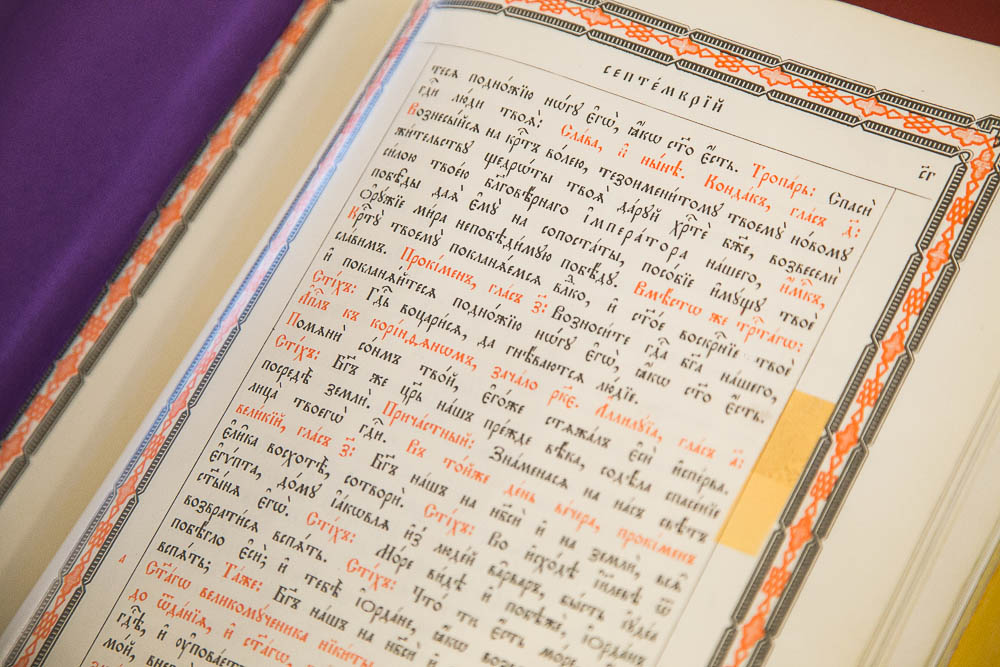 СЕПТЕ́МВРІЙ
тися подно́жїю нѡ́гꙋ є҆гѡ̀, ꙗ҆́кѡ ст҃о є҆́сть. Тропа́рь: Спасѝ
гдⷭ҇и лю́ди твоѧ̑: Сла́ва, и҆ ны́нѣ. Конда́къ, гла́съ д҃:
Вознесы́йсѧ на крⷭ҇тъ во́лею, тезоимени́томꙋ твоемꙋ̀ но́вомꙋ
жи́тельствꙋ щедрѡ́ты твоѧ̑ да́рꙋй хрⷭ҇тѐ бж҃е, возвеселѝ
си́лою твое́ю бл҃говѣ́рнаго і҆мпера́тора на́шего, и҆́м҃къ,
побѣ́ды даѧ̀ є҆мꙋ̀ на сопоста́ты, посо́бїе и҆мꙋ́щꙋ твоѐ
Ѻ҆рꙋ́жїе ми́ра непобѣди́мꙋю побѣ́дꙋ. Вмѣ́стѡ же трист҃а́гѡ:
Крⷭ҇тꙋ̀ твоемꙋ̀ покланѧ́емсѧ вл҃ко, и҆ ст҃о́е воскрⷭ҇нїе твоѐ
сла́вимъ. Проки́менъ, гла́съ з҃: Возноси́те гдⷭ҇а бг҃а на́шего,
и҆ покланѧ́йтесѧ подно́жїю нѡ́гꙋ є҆гѡ̀, ꙗ҆́кѡ ст҃о є҆́сть.
Сті́хъ: Гдⷭ҇ь воцари́сѧ, да гнѣ́ваютсѧ лю́дїе.
А҆пⷭ҇лъ къ корі́нѳѧнѡмъ, зача́ло рк҃є. А҆ллилꙋ́їа, гла́съ а҃:
Помѧнѝ со́нмъ тво́й, є҆го́же стѧжа́лъ є҆сѝ и҆спе́рва.
Сті́хъ: Бг҃ъ же цр҃ь на́шъ пре́жде вѣ́ка, содѣ́ла спасе́нїе
посредѣ̀ землѝ. Прича́стный: Зна́менасѧ на на́съ свѣ́тъ
лица̀ твоегѡ̀ гдⷭ҇и. Въ то́йже де́нь ве́чера, проки́менъ
вели́кїй, гла́съ з҃: Бг҃ъ на́шъ на нб҃сѝ и҆ на землѝ, всѧ̑
є҆ли̑ка восхотѣ̀, сотворѝ. Сті́хъ: Во и҆схо́дѣ і҆и҃левѣ ѿ
є҆гѵ́пта, до́мꙋ і҆а́кѡвлѧ и҆з̾ люде́й ва́рваръ, бы́сть і҆ꙋде́а
ст҃ы́нѧ є҆гѡ̀. Сті́хъ: Мо́ре ви́дѣ и҆ побѣжѐ, і҆ѻрда́нъ
возврати́сѧ вспѧ́ть. Сті́хъ: Что́ ти є҆́сть мо́ре,
побѣ́гло є҆сѝ; и҆ тебѣ̀ і҆ѻрда́не, ꙗ҆́кѡ
вспѧ́ть; Та́же: Бг҃ъ на́шъ на нб҃сѝ и҆
Ст҃а́гѡ великомꙋ́ченика ники́ты
до ѿда́нїѧ, и҆ ст҃а́гѡ,
гдⷭ҇ѣ, и҆ ᲂу҆пова́е
мо́й,